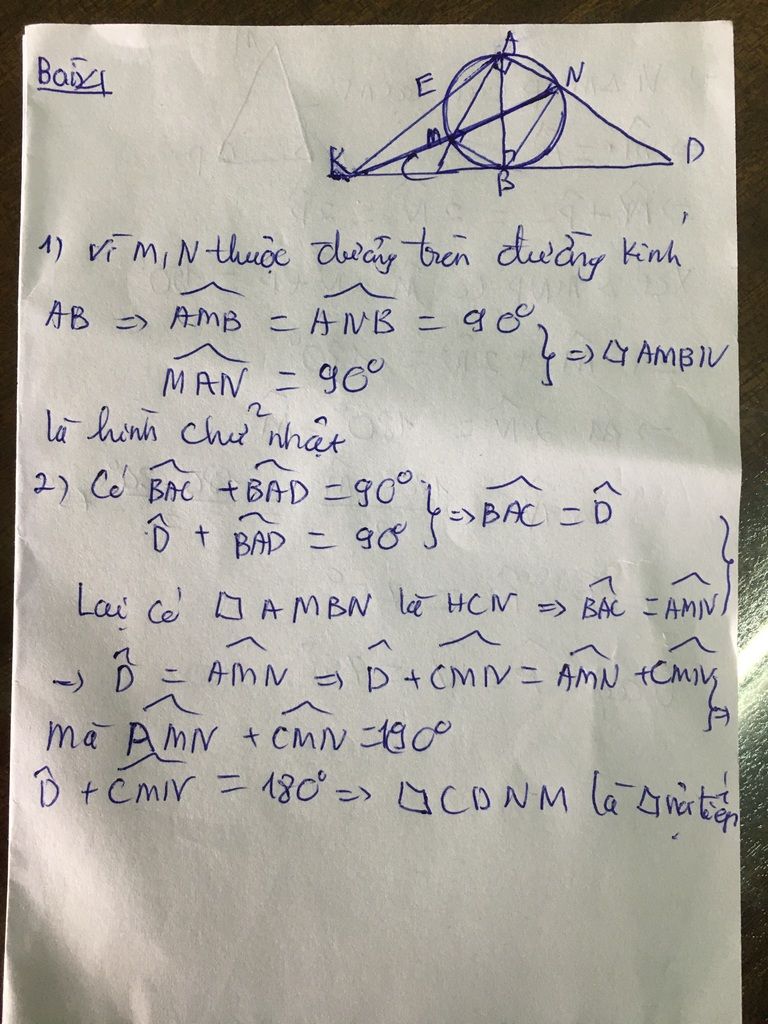 Bài 4
A
E
N
M
K
B
D
1) Vì M, N thuộc đường tròn đường kính
AB => AMB = ANB = 90°
MAN = 90°
} => ▱ AMBN
là hình chữ nhật
2) Có BAC + BAD = 90°
D̂ + BAD = 90°
} => BAC = D̂
Lại có ▱ AMBN là HCN => BAC = AMN }
=> D̂ = AMN => D̂ + CMN = AMN + CMN
mà AMN + CMN = 180° } =>
D̂ + CMN = 180° => ▱ CDNM là ▱ nội tiếp